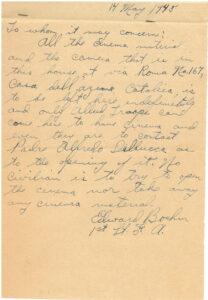 14 May 1945
To whom it may concern:
All the cinema material
and the camera that is in
this house at via Roma No. 167,
Casa dell'azione Catolica, is
to be left here indefinitely
and only Allied troops can
come here to have cinema and
even they are to contact
Padre Alfredo as
to the opening of it. No
civilian is to try to open
the cinema nor take away
any cinema material.
Edward
1st Lt. F. A.